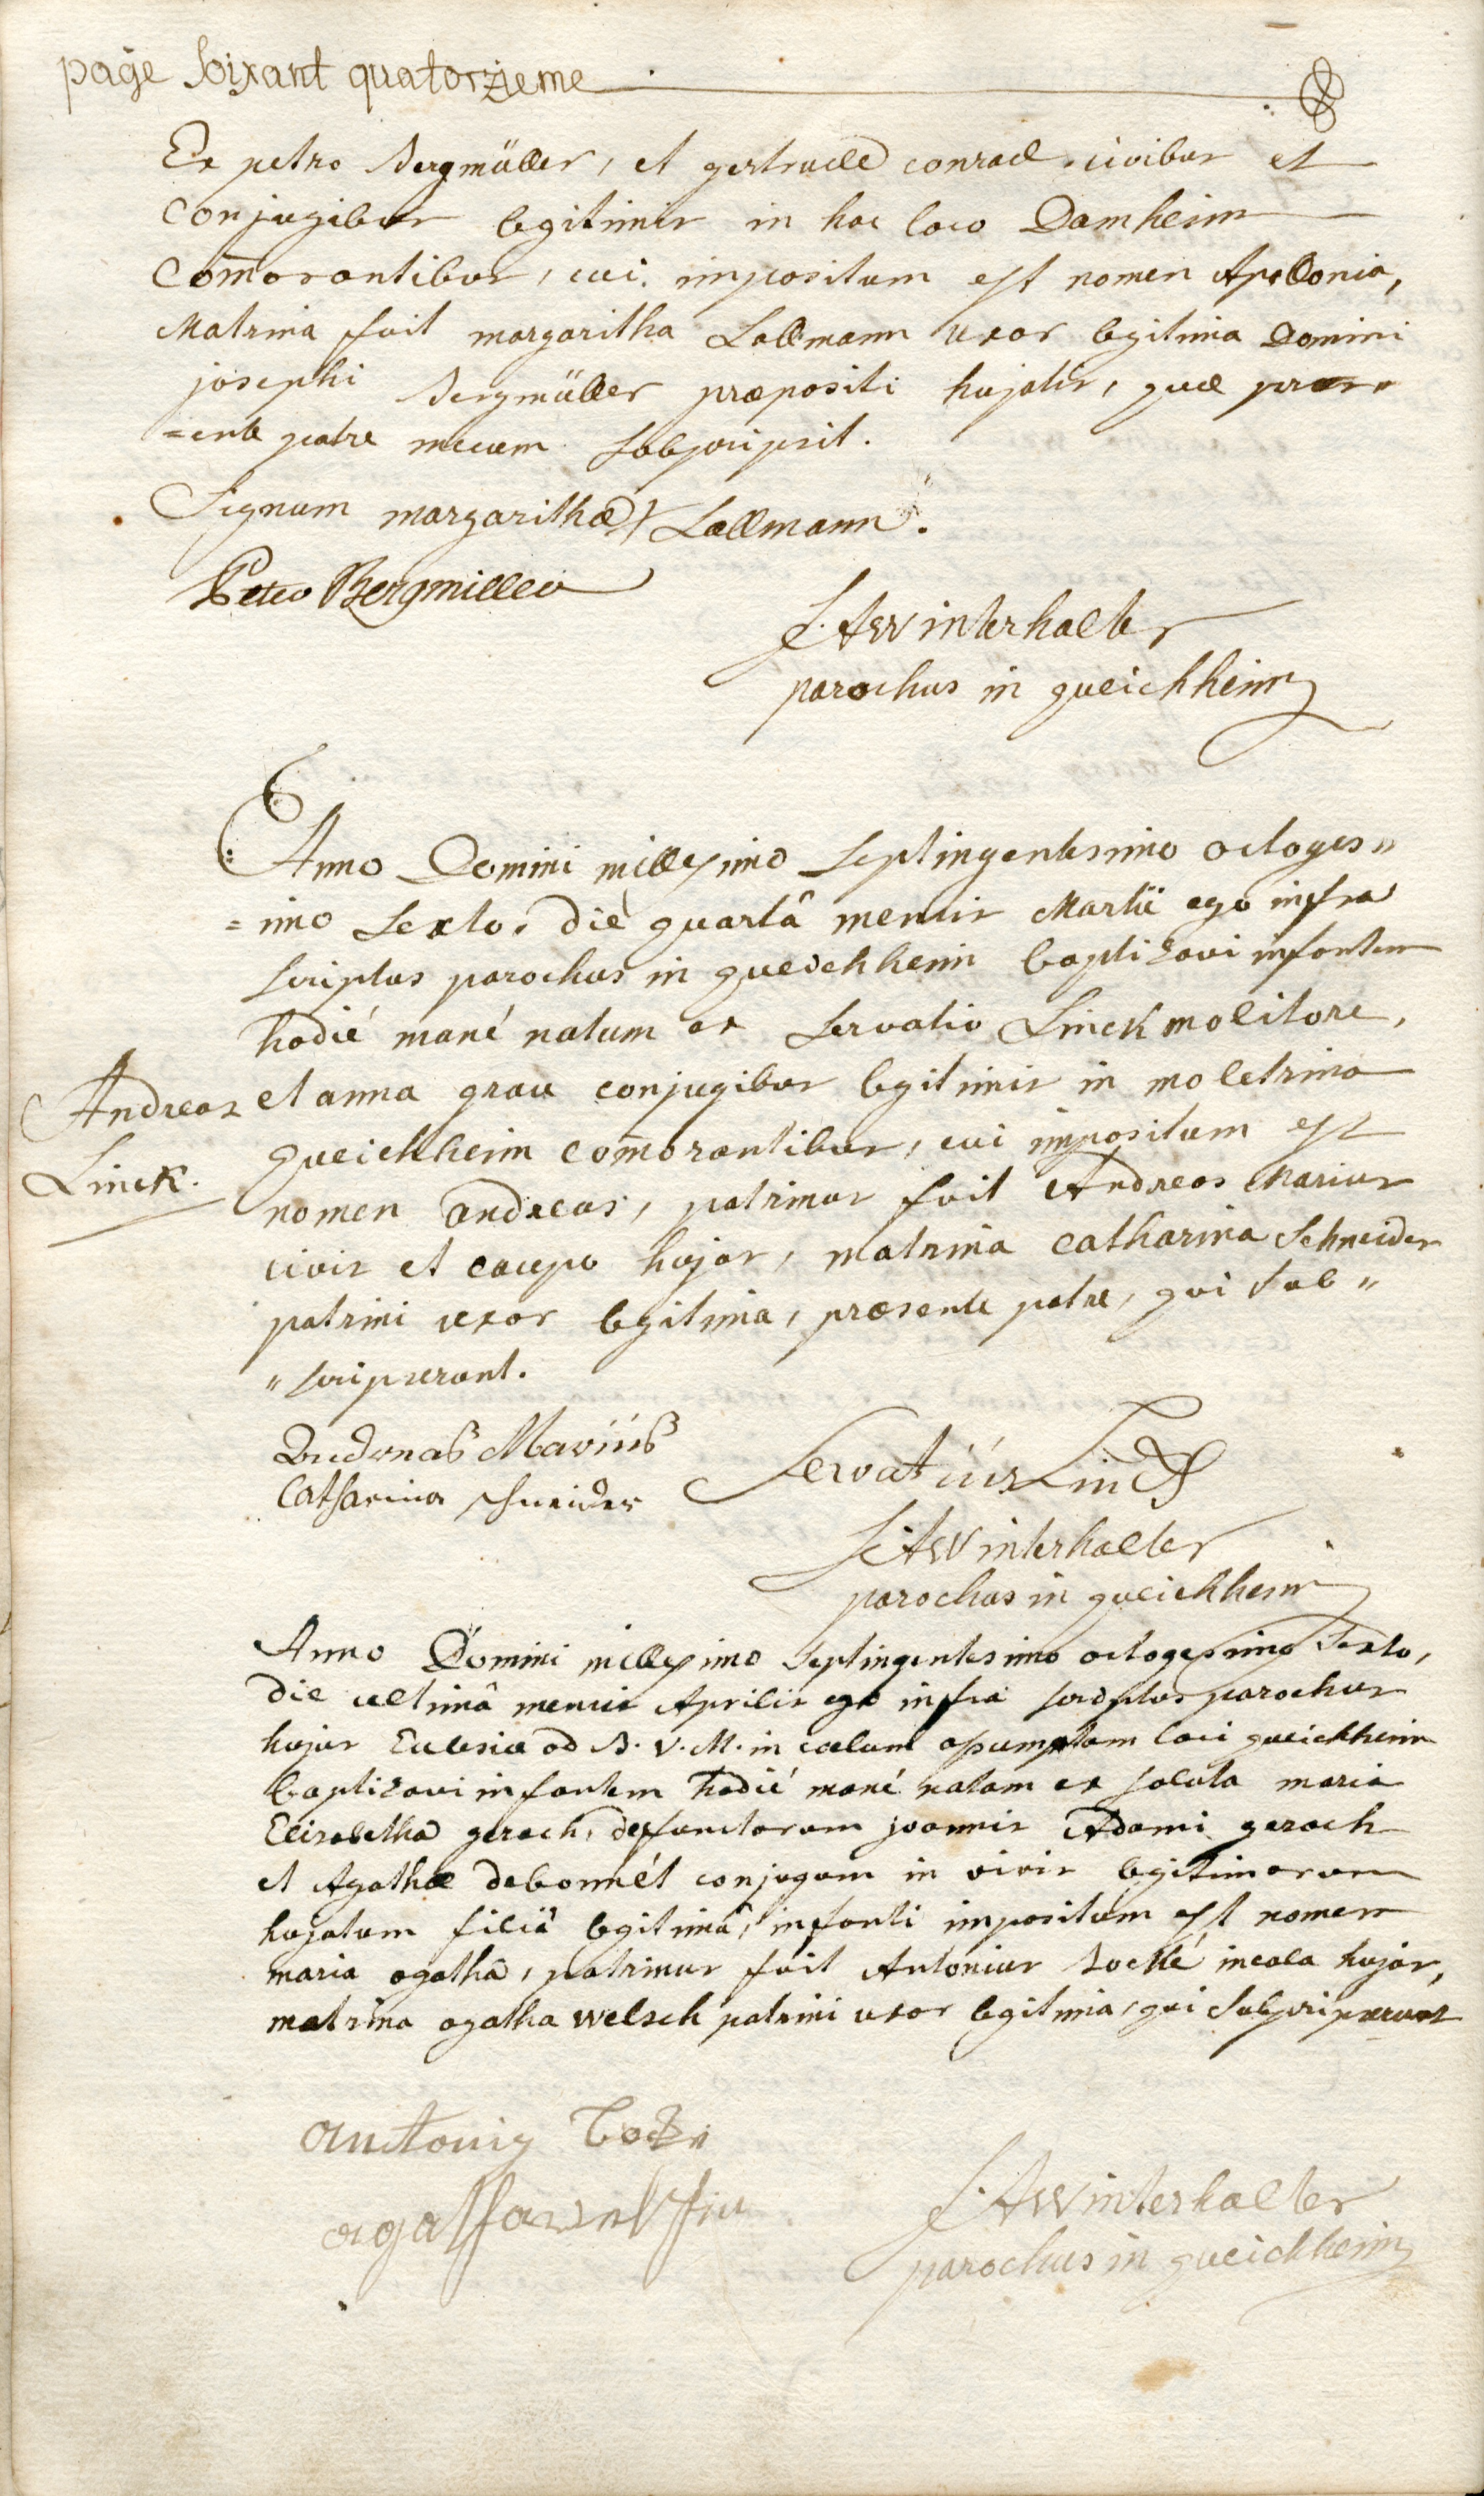 page soixant quatorzieme
Ex petro Bergmüller, et gertrude conrad civibus et
Conjugibus legitimis in hoc loco Damheim
Com̄orantibus, cui impositum est nomen Apollonia,
Matrina fuit margaritha Lallmann uxor legitima Domini
josephi Bergmüller præpositi hujatis, quæ præs=
=ente patre mecum subscripsit.
Signum margarithæ + Lallmann.
Peter Bergmiller
F. A Winterhalter
parochus in queichheim
Anno Domini millesimo septingentesimo octoges"
=imo sexto, die quartâ mensis Martii ego infra
scriptus parochus in queichheim baptizavi infantem
hodié mané natum ex servatio Linck molitore,
et anna grau conjugibus legitimis in moletrina
Andreas
Linck.
queichheim com̄orantibus, cui impositum est
nomen andreas, patrinus fuit Andreas Marius
civis et caupo hujas, matrina catharina Schneider
patrini uxor legitima, præsente patre, qui sub"
"scripserunt.
Andreas Mariüs
Catharina schneider
Servatiús Linck
F. A Winterhalter
parochus in queichheim
Anno Domini millesimo septingentesimo octogesimo sexto,
die ultimâ mensis Aprilis ego infra scriptus parochus
hujus Ecclesiæ ad B. V. M. in cælum assumptam loci queichheim
baptizavi infantem hodié mané natam ex soluta maria
Elisabetha gerach, defunctorum joannis Adami gerach
et Agathæ debonnét conjugum in vivis legitimorum
hujatum filiâ legitimâ, infanti impositum est nomen
maria agatha, patrinus fuit Antonius Bocklé incola hujas,
matrina agatha welsch patrini uxor legitima, qui subscripserunt
antoni
agatha
F. A Winterhalter
parochus in queichheim